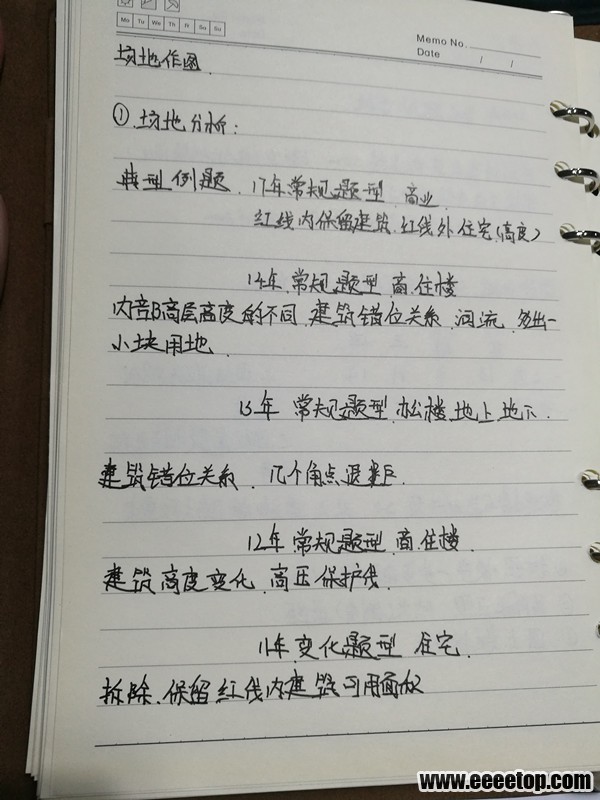 Mo Tu We Th Fr Sa Su
Memo No.
Date / /
场地作图
① 场地分析:
典型例题. 17年常规题型 商业.
红线内保留建筑. 红线外住宅(高度)
14年. 常规题型 商.住楼
内部高层高度的不同. 建筑错位关系. 河流. 多出一
小块用地.
13年 常规题型. 办公楼. 地上地下.
建筑错位关系. 几个角点退距.
12年. 常规题型. 商.住楼.
建筑高度变化. 高压保护线.
11年. 变化题型 住宅.
拆除.保留红线内建筑 可用面积
www.eeeetop.com